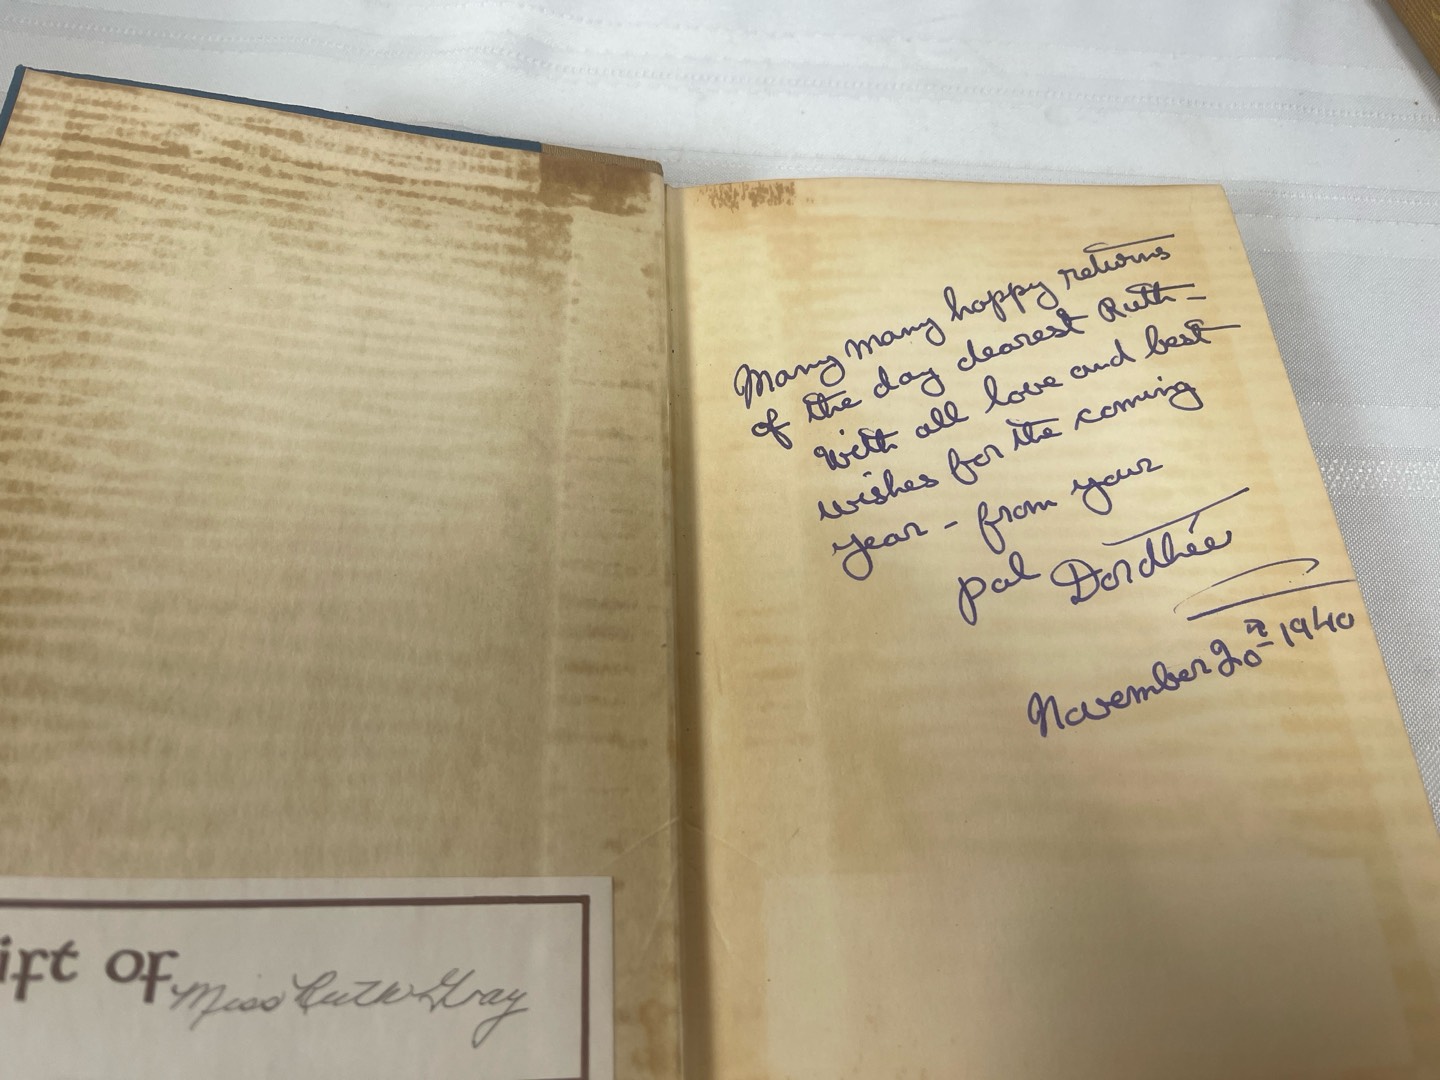 ift of Miss Ruth Gray
Many many happy returns
of the day dearest Ruth -
With all love and best
wishes for the coming
year - from your
pal Dordhée
November 20th 1940